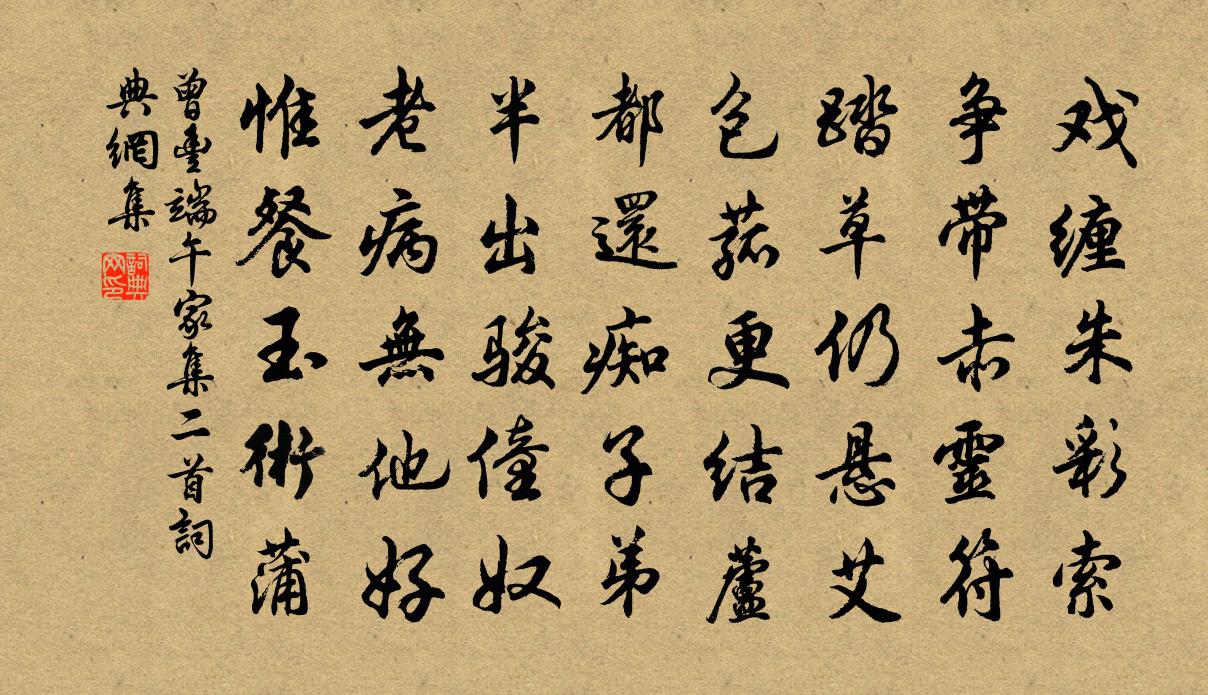 戏缠朱彩索
争带赤靈符
踏草仍悬艾
包菰更结蘆
都還痴子弟
半出骏僮奴
老病無他好
惟餐玉術蒲
曾豊端午家集二首詞
典網集
詞典网印